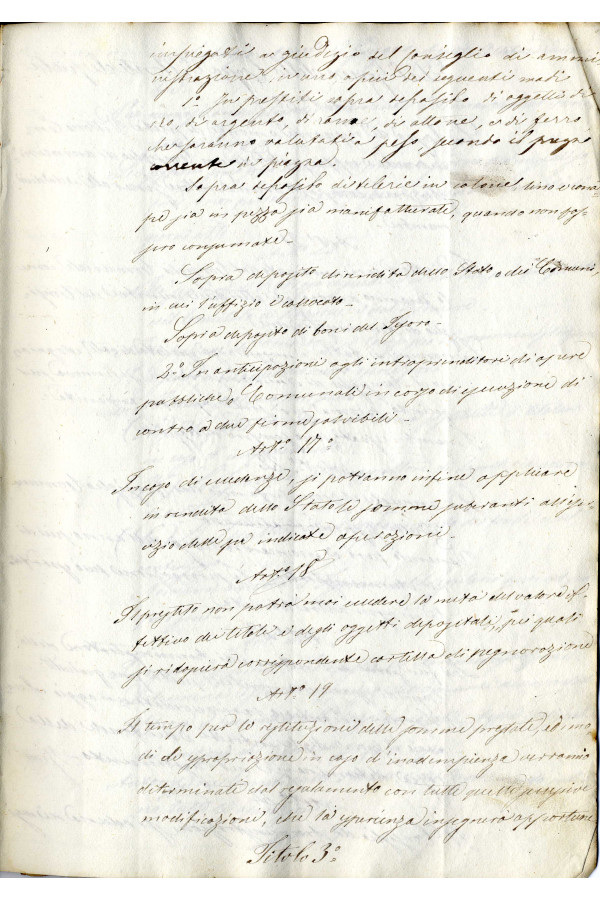 impiegati a giudizio del Consiglio di ammi
nistrazione in uno o più dei seguenti modi
1.° In prestiti sopra deposito di oggetti di
oro, di argento, di rame, di ottone, o di ferro
che saranno valutati a peso, secondo il prezzo
corrente di piazza.
Sopra deposito di telerie in cotone, lino o cana
pe sia in pezza sia manifatturate, quando non sos-
sero consumate-
Sopra deposito di rendita dello Stato o dei Comuni,
in cui l'uffizio è allocato-
Sopra deposito di boni del Tesoro-
2.° In anticipazioni agli intraprenditori di opere
pubbliche o Comunali in corso di esecuzione di
contro a due firme solvibili-
Art.° 17°
In caso di eccedenze, si potranno infine applicare
in rendita dello Stato le somme superanti all'eser-
cizio delle già indicate operazioni-
Art.° 18
Il prestito non potrà mai eccedere la metà del valore ef-
fettivo dei titoli e degli oggetti depositati, pei quali
si rilascierà corrispondente cartella di pegnorazione
Art.° 19
Il tempo per la restituzione delle somme prestate, ed i mo
di di espropriazione in caso di inadempienza verranno
determinate dal regolamento con tutte quelle successive
modificazioni, che la esperienza insegnerà apportare
Titolo 3°